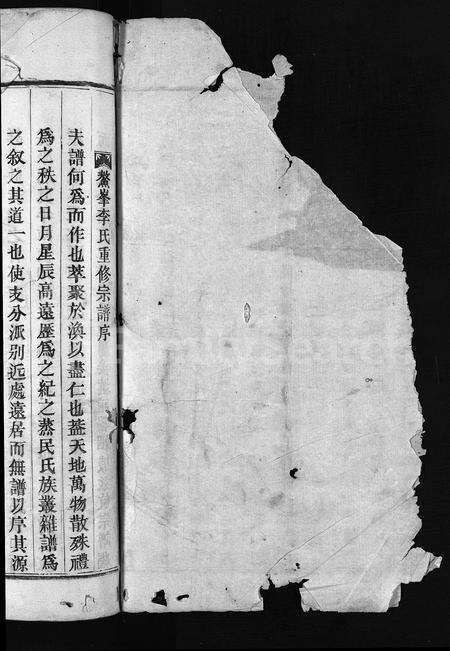 鰲峯李氏重修宗譜序
夫譜何爲而作也萃聚於渙以盡仁也葢天地萬物散殊禮
爲之秩之日月星辰高遠歷爲之紀之蒸民氏族叢雜譜爲
之叙之其道一也使支分派别近處遠居而無譜以序其源